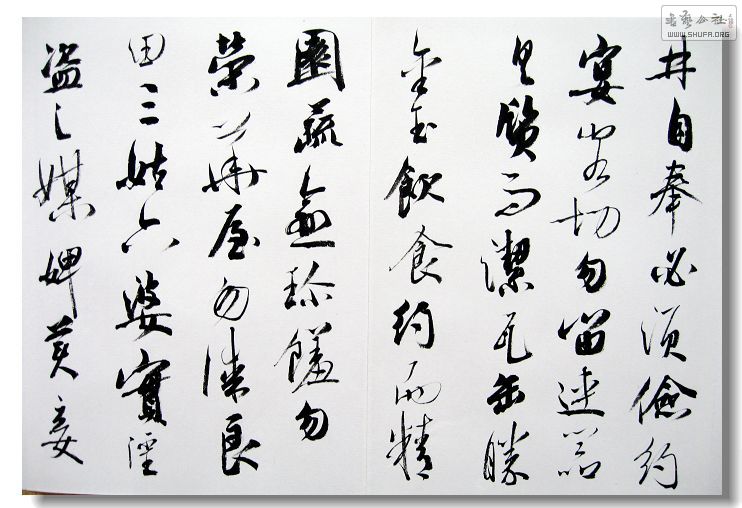 井自奉必須儉約
宴客切勿留連器
具質而潔瓦缶勝
金玉飲食約而精
園蔬愈珍饈勿
營華屋勿謀良
田三姑六婆實淫
盜之媒婢美妾
書藝公社
WWW.SHUFA.ORG